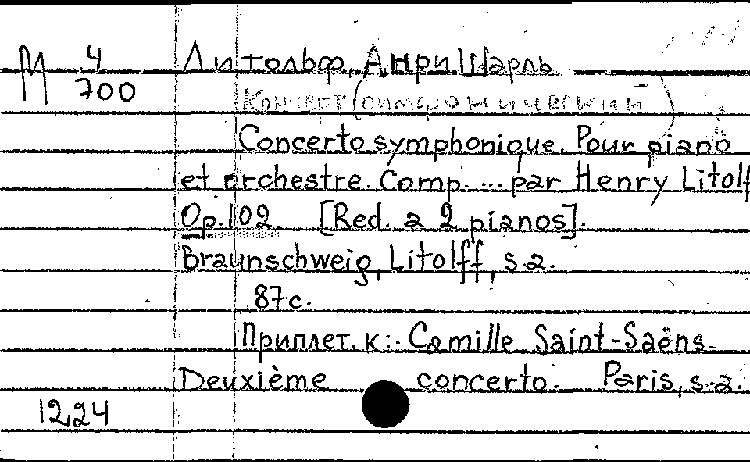 М 4 Литольф, Анри Шарль
700
Концерт (симфонический)
Concerto symphonique. Pour piano
et orchestre. Comp. ... par Henry Litolf
Op. 102. [Red. a 2 pianos].
Braunschweig, Litolff, s.a.
87 с.
Приплет. к:. Camille Saint-Saëns.
Deuxième concerto. Paris, s.a.
1224